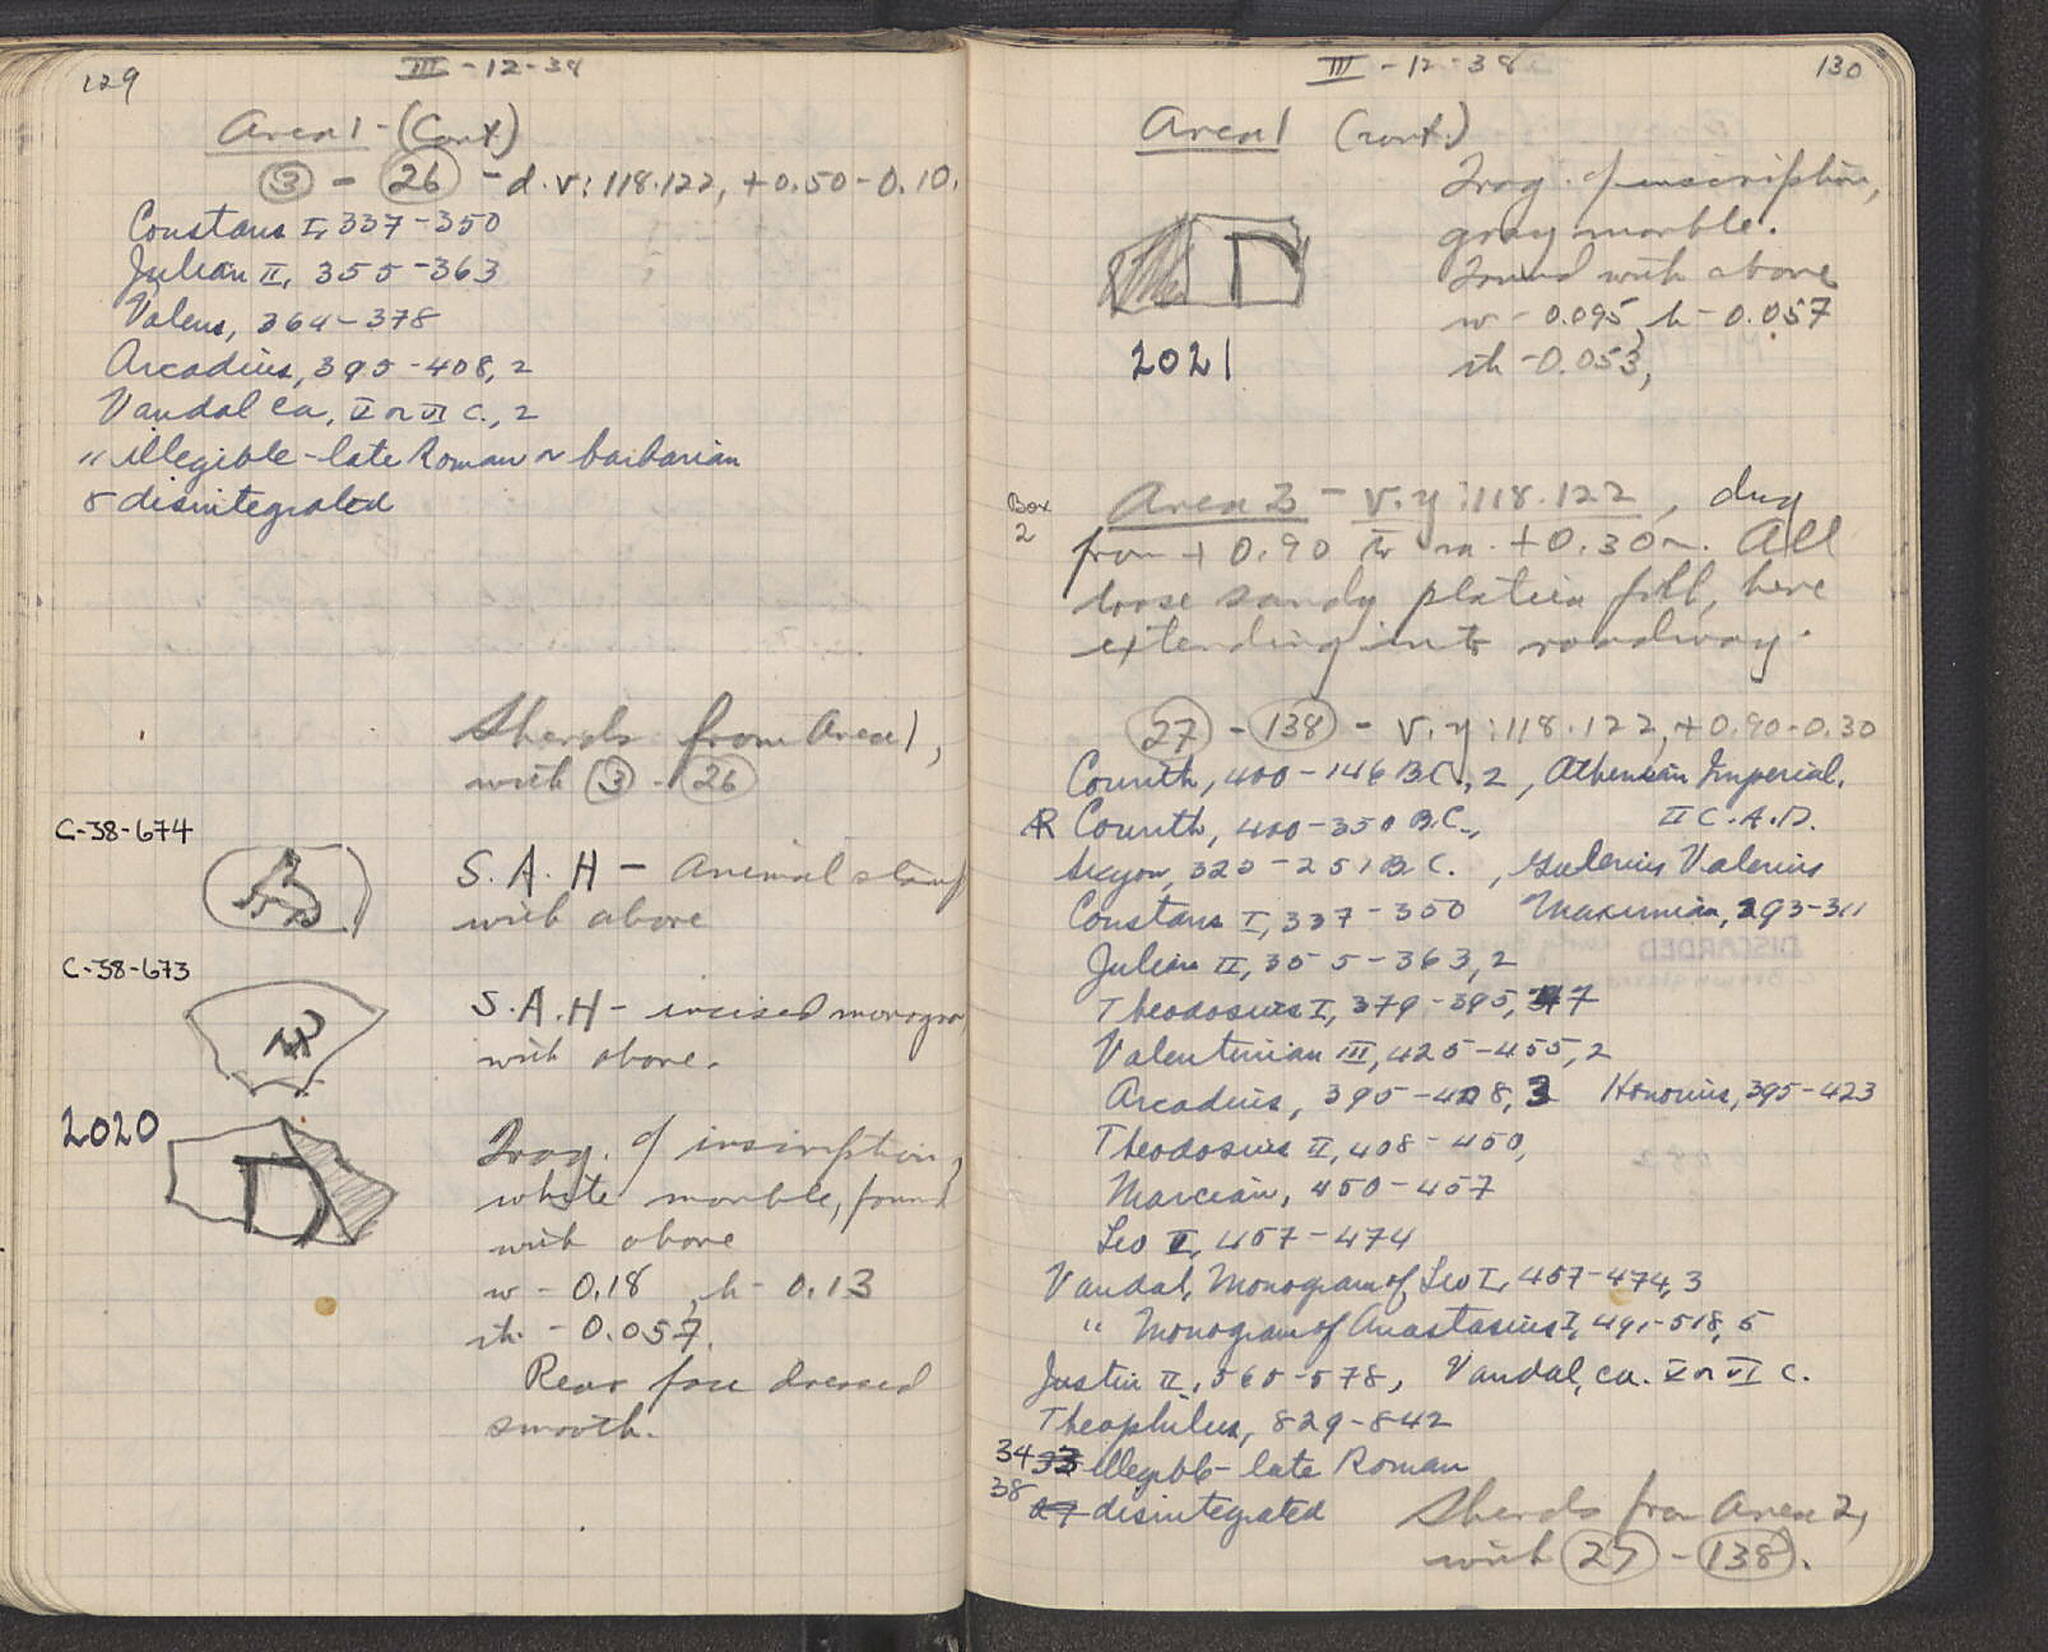 129
III - 12 - 38
Area 1 - (Cont)
3 - 26 - d.v: 118.122, +0.50 - 0.10.
Constans I, 337-350
Julian II, 355-363
Valens, 364-378
Arcadius, 395-408, 2
Vandal ca. V or VI C., 2
11 illegible - late Roman or barbarian
disintegrated
Sherds from Area 1,
with 3 - 26
C-38-674
S.A.H - Animal stamp
with above
C-38-673
S.A.H - incised monogram
with above.
2020
Frag. of inscription,
white marble, found
with above
w - 0.18, h - 0.13
th. - 0.057.
Rear face dressed
smooth.
III - 12 - 38
130
Area 1 (cont.)
Frag. of inscription,
gray marble.
Found with above
w - 0.095, h - 0.057
th - 0.053,
2021
Box
2
Area 2 - v.y: 118.122, dug
from +0.90 to ca. +0.30m. All
loose sandy plateia fill, here
extending into roadway.
27 - 138 - v.y: 118.122, +0.90-0.30
Corinth, 400-146 B.C., 2, Athenian Imperial.
II C. A.D.
AR Corinth, 400-350 B.C.,
Sicyon, 323-251 B.C., Galerius Valerius
Constans I, 337-350 Maximian, 293-311
DISCARDED
Julian II, 355-363, 2
Theodosius I, 379-395, 7
Valentinian III, 425-455, 2
Arcadius, 395-408, 3 Honorius, 395-423
Theodosius II, 408-450,
Marcian, 450-457
Leo I, 457-474
Vandal, Monogram of Leo I, 457-474, 3
" Monogram of Anastasius I, 491-518, 5
Justin II, 565-578, Vandal, ca. V or VI C.
Theophilus, 829-842
34 33 illegible - late Roman
38 27 disintegrated
Sherds from Area 2,
with 27 - 138.